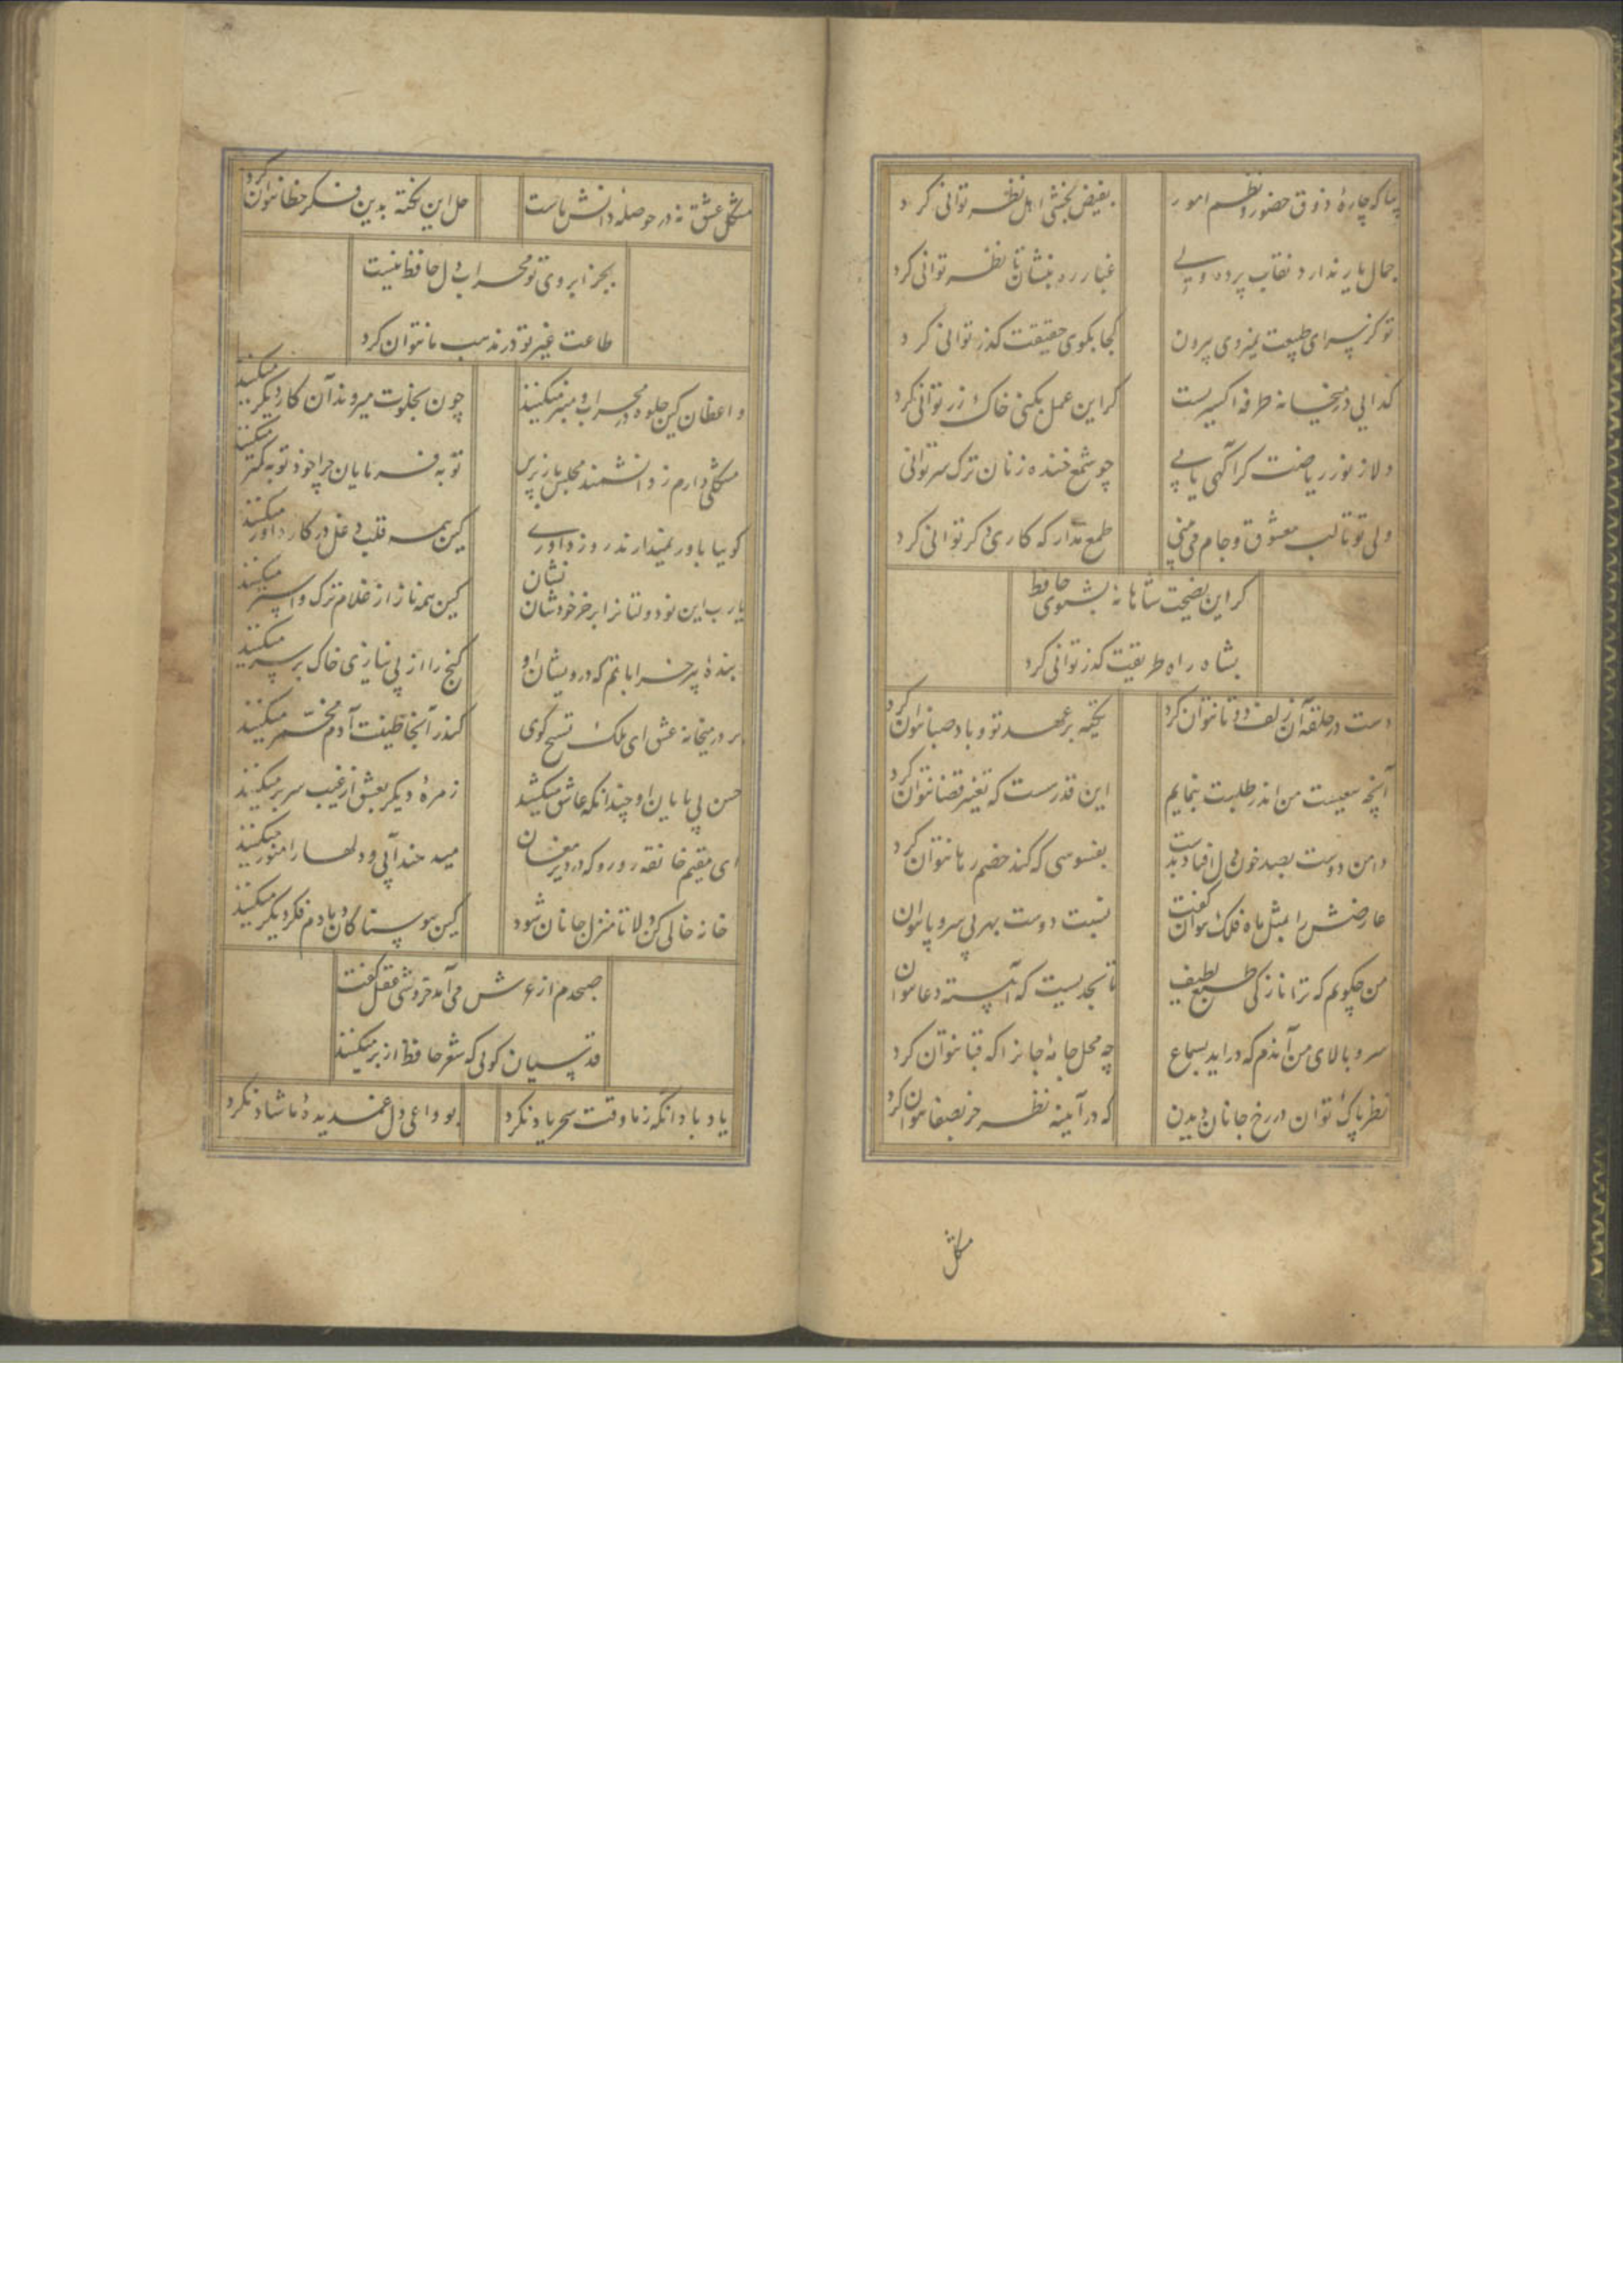 بیا که چارهٔ ذوق حضور و نظم امور بفیض بخشی اهل نظر توانی کرد
جمال یار ندارد نقاب پرده ولی غبار ره بنشان تا نظر توانی کرد
تو کز سرای طبیعت نمیروی بیرون کجا بکوی حقیقت گذر توانی کرد
گدایی در میخانه طرفه اکسیریست گر این عمل بکنی خاک زر توانی کرد
دلا ز نور ریاضت گر آگهی یابی چو شمع خنده زنان ترک سر توانی
ولی تو تا لب معشوق و جام می طمع مدار که کاری دگر توانی کرد
گر این نصیحت شاهانه بشنوی حافظ
بشاه راه طریقت گذر توانی کرد
دست در حلقه آن زلف دوتا نتوان کرد تکیه بر عهد تو و باد صبا نتوان کرد
آنچه سعیست من اندر طلبت بنمایم این قدرست که تغییر قضا نتوان کرد
دامن دوست بصد خون دل افتاد بدست بفسوسی که کند خصم رها نتوان کرد
عارضش را بمثل ماه فلک نتوان گفت نسبت دوست بهر بی سر و پا نتوان
من چگویم که ترا نازکی طبع لطیف تا بحدیست که آهسته دعا نتوان
سرو بالای من آندم که دراید بسماع چه محل جامهٔ جانرا که قبا نتوان کرد
نظر پاک توان در رخ جانان دیدن که در آینه نظر جز بصفا نتوان کرد
مشکل
مشکل عشق نه در حوصلهٔ دانش ماست حل این نکته بدین فکر خطا نتوان کرد
بجز ابروی تو محراب دل حافظ نیست
طاعت غیر تو در مذهب ما نتوان کرد
واعظان کین جلوه در محراب و منبر میکنند چون بخلوت میروند آن کار دیگر میکنند
مشکلی دارم ز دانشمند مجلس باز پرس توبه فرمایان چرا خود توبه کمتر میکنند
گوییا باور نمیدارند روز داوری کین همه قلب و دغل در کار داور میکنند
یارب این نودولتانرا بر خر خودشان نشان کین همه ناز از غلام ترک و استر میکنند
بندهٔ پیر خراباتم که درویشان او گنج را از بی نیازی خاک بر سر میکنند
بر در میخانه عشق ای ملک تسبیح گوی کندر آنجا طینت آدم مخمر میکنند
حسن بی پایان او چندانکه عاشق میکشد زمرهٔ دیگر بعشق از غیب سر بر میکنند
ای مقیم خانقه رو رو که در دیر مغان میدهند آبی و دلها را منور میکنند
خانه خالی کن دلا تا منزل جانان شود کین هوسناکان دل و دم فکر دیگر میکنند
صبحدم از عرش می آمد خروشی عقل گفت
قدسیان گویی که شعر حافظ از بر میکنند
یاد باد آنکه ز ما وقت سحر یاد نکرد بوداعی دل غمدیدهٔ ما شاد نکرد